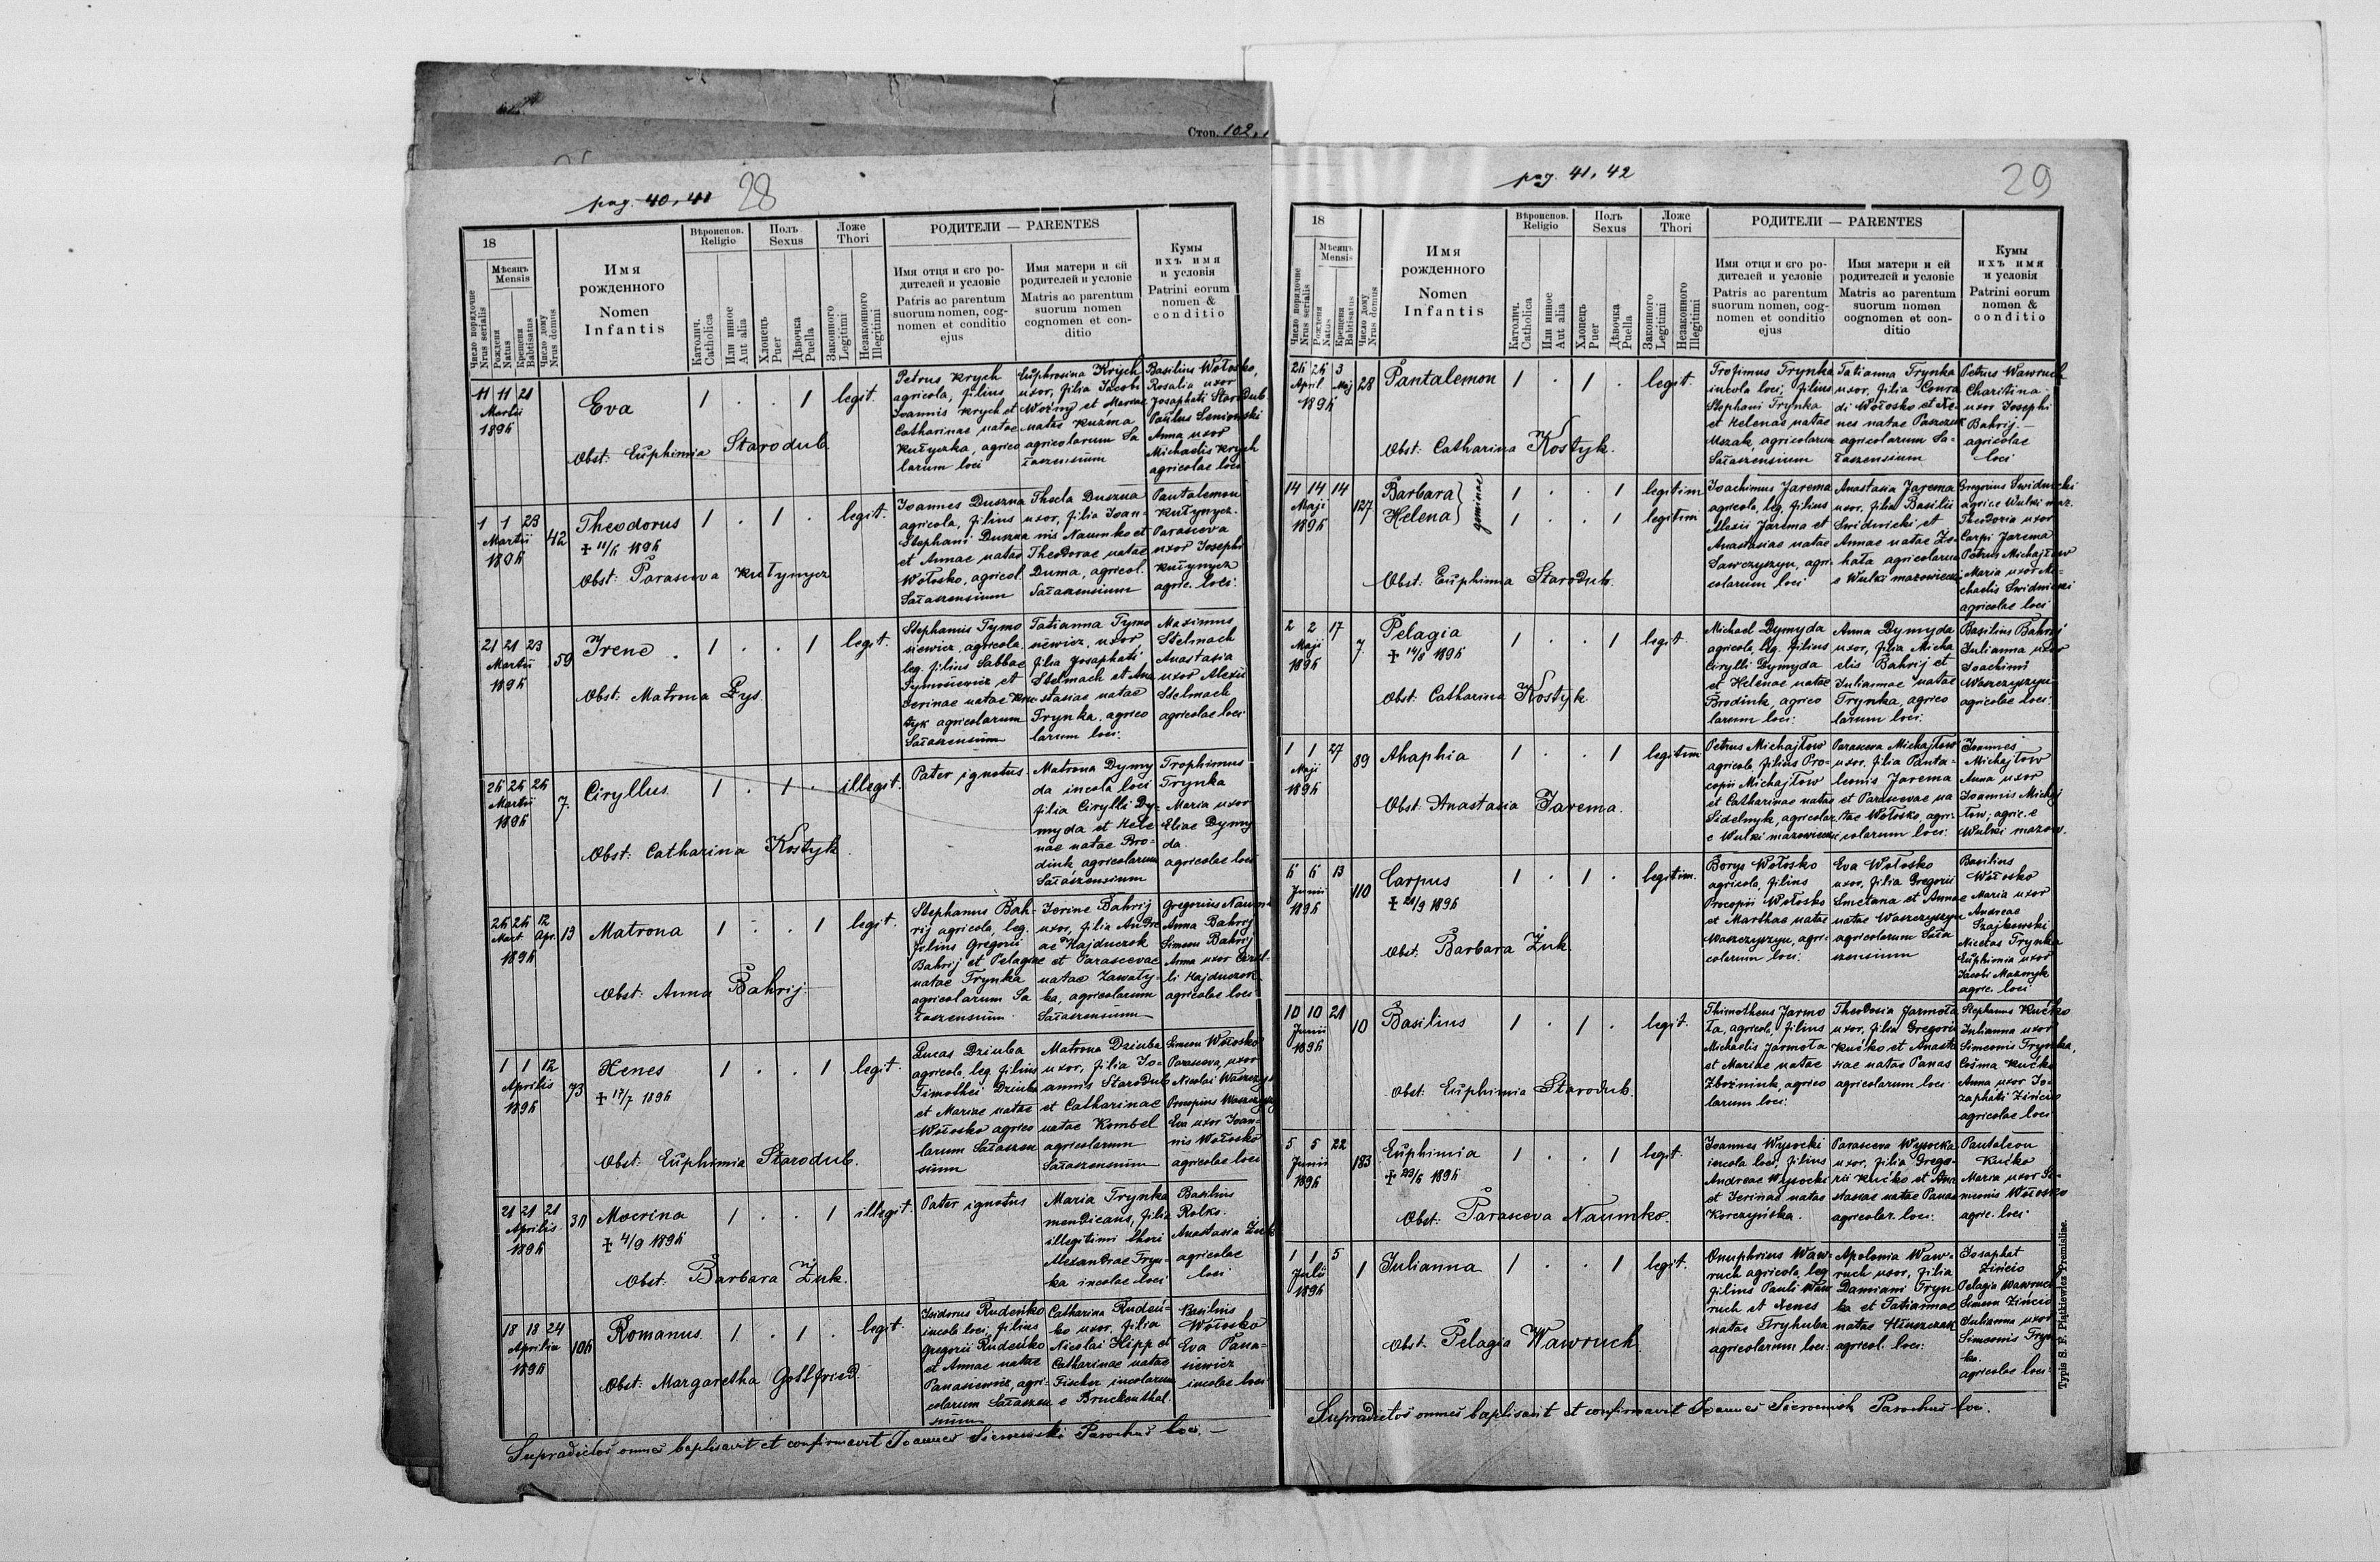 Стоп. 102,
pag. 40, 41 28
18
Мѣсяцъ
Mensis
Число порядочне
Nrus serialis
Рожденя
Natus
Крещеня
Babtisatus
Число дому
Nrus domus
Имя
рожденного
Nomen
Infantis
Вѣроиспов.
Religio
Католич.
Catholica
Или инное
Aut alia
Полъ
Sexus
Хлопецъ
Puer
Дѣвочка
Puella
Ложе
Thori
Законного
Legitimi
Незаконного
Illegitimi
РОДИТЕЛИ — PARENTES
Имя отця и єго ро-
дителей и условіе
Patris ac parentum
suorum nomen, cog-
nomen et conditio
ejus
Имя матери и єй
родителей и условіе
Matris ac parentum
suorum nomen
cognomen et con-
ditio
Кумы
ихъ имя
и условія
Patrini eorum
nomen &
conditio
11 11 21
Martii
189
Eva
1 . . 1 legit.
Obst: Euphimia Starodub
Petrus Krych
agricola, filius
Joannis Krych et
Catharinae natae
Kułyczka, agrico
larum loci
Euphrosina Krych
uxor, filia Jacobi
Woźny et Mariae
natae Kuźma
agricolarum Sa
łaszensium
Basilius Wołosko,
Rosalia uxor
Josaphati Starodub
Paulus Seniowski
Anna uxor
Michaelis Krych
agricolae loci
1 1 23
Martii
189
42
Theodorus
1 . 1 . legit.
Obst: Parascewa Kułynycz
Joannes Duszna
agricola, filius
Stephani Duszna
et Annae natae
Wołosko, agricol.
Sałaszensium
Thecla Duszna
uxor, filia Joan-
nis Naumko et
Theodorae natae
Duma, agricol.
Sałaszensium
Pantalemon
Kułynycz.
Parascewa
uxor Josephi
Kułynycz
agric. loci.
21 21 23
Martii
189
59
Irene
1 . . 1 legit.
Obst: Matrona Pys.
Stephanus Tymo
siewicz, agricola,
leg. filius Sabbae
Tymosiewicz et
Jerinae natae Kos
tyk agricolarum
Sałaszensium
Tatianna Tymo
siewicz, uxor
filia Josaphati
Stelmach et Ana
stasiae natae
Trynka, agrico
larum loci.
Maximus
Stelmach
Anastasia
uxor Alexii
Stelmach
agricolae loci
Martii
189
7.
Cyryllus.
1 . 1 . illegit.
Obst: Catharina Kostyk
Pater ignotus.
Matrona Dymy
da incola loci
filia Cirylli Dy-
myda et Hele
nae natae Bro-
dink agricolarum
Sałaszensium
Trophimus
Trynka
Maria uxor
Eliae Dymy
da
agricolae loci
Mart. Apr.
189
13
Matrona
1 . . 1 legit.
Obst: Anna Bahrij
Stephanus Bah-
rij agricola, leg.
filius Gregorii
Bahrij et Pelagiae
natae Trynka
agricolarum Sa
łaszensium
Jerine Bahrij
uxor, filia Andre
ae Hajduczok
et Parascevae
natae Zawały-
ka, agricolarum
Sałaszensium
Gregorius Naumko
Anna Bahrij
Simeon Bahrij
Anna uxor Cyril-
li Hajduczok
agricolae loci
1 1 12
Aprilis
189
73
Xenes
1 . . 1 legit.
Obst: Euphimia Starodub.
Lucas Dziuba
agricola, leg. filius
Timothei Dziuba
et Mariae natae
Wołosko agrico
larum Sałaszen
sium
Matrona Dziuba
uxor, filia Jo-
annis Starodub
et Catharinae
natae Kombel
agricolarum
Sałaszensium
Simeon Wołosko
Parascewa, uxor
Nicolai Waszczyszyn
Procopius Waszczyszyn
Eva uxor Joan-
nis Wołosko
agricolae loci
21 21 21
Aprilis
189
Macrina
1 . . 1 illegit.
Obst: Barbara Żuk.
Pater ignotus
Maria Trynka
mendicans, filia
illegitimi thori
Alexandrae Tryn-
ka incolae loci
Basilius
Rolko.
Anastasia Żuk
agricolae
loci
18 18 24
Aprilis
189
Romanus.
1 . 1 . legit.
Obst: Margaretha Gottfried.
Isidorus Rudeńko
incola loci, filius
Gregorii Rudeńko
et Annae natae
Panasiewicz, agri-
colarum Sałaszen
sium
Catharina Rudeń-
ko uxor, filia
Nicolai Hipp et
Catharinae natae
Fischer incolarum
e Bruckenthal.
Basilius
Wołosko
Eva Pana-
siewicz
incolae loci
Supradictos omnes baptisavit et confirmavit Joannes Sierociński Parochus loci.
pag. 41, 42
29
18
Мѣсяцъ
Mensis
Число порядочне
Nrus serialis
Рожденя
Natus
Крещеня
Babtisatus
Число дому
Nrus domus
Имя
рожденного
Nomen
Infantis
Вѣроиспов.
Religio
Католич.
Catholica
Или инное
Aut alia
Полъ
Sexus
Хлопецъ
Puer
Дѣвочка
Puella
Ложе
Thori
Законного
Legitimi
Незаконного
Illegitimi
РОДИТЕЛИ — PARENTES
Имя отця и єго ро-
дителей и условіе
Patris ac parentum
suorum nomen, cog-
nomen et conditio
ejus
Имя матери и єй
родителей и условіе
Matris ac parentum
suorum nomen
cognomen et con-
ditio
Кумы
ихъ имя
и условія
Patrini eorum
nomen &
conditio
April Maj
189
28
Pantalemon
1 . 1 . legit.
Obst: Catharina Kostyk.
Trofimus Trynka
incola loci, filius
Stephani Trynka
et Helenae natae
Mszak, agricolarum
Sałaszensium
Tatianna Trynka
uxor, filia Conra
di Wołosko et Xe-
nes natae Paszczuk
agricolarum Sa-
łaszensium
Petrus Wawruch
Charitina
uxor Josephi
Bahrij.
agricolae
loci
14 14 14
Maji
189
127
Barbara
Helena
geminae
1 . . 1 legitim
1 . . 1 legitim
Obst: Euphimia Starodub.
Joachimus Jarema
agricola, leg. filius
Alexii Jarema et
Anastasiae natae
Sawczyszyn, agri-
colarum loci
Anastasia Jarema
uxor, filia Basilii
Swidnicki et
Annae natae Zo-
hata agricolarum
e Wulki mazowiecki
Gregorius Swidnicki
agric. e Wulki maz.
Theodozia uxor
Carpi Jarema
Petrus Michajłow
Maria uxor Mi-
chaelis Swidnicki
agricolae loci
2 2 17
Maji
189
7.
Pelagia
1 . . 1 legit.
Obst: Catharina Kostyk.
Michael Dymyda
agricola, leg. filius
Cirylli Dymyda
et Helenae natae
Brodink, agrico
larum loci.
Anna Dymyda
uxor, filia Micha
elis Bahrij et
Juliannae natae
Trynka, agrico
larum loci.
Basilius Bahrij
Julianna uxor
Joachimi
Waszczyszyn
agricolae loci.
1 1 27
Maji
189
89
Ahaphia
1 . . 1 legitim
Obst: Anastasia Jarema.
Petrus Michajłow
agricola, filius Pro-
copii Michajłow
et Catharinae natae
Sidelnyk, agricolar.
e Wulki mazowiecki
Parascewa Michajłow
uxor, filia Panta-
leonis Jarema
et Parascevae na
tae Wołosko, agri-
colarum loci.
Joannes
Michajłow
Anna uxor
Joannis Michaj
łow, agric. e
Wulki mazow.
13
Junii
189
110
Carpus
1 . 1 . legitim.
Obst: Barbara Żuk
Borys Wołosko
agricola, filius
Procopii Wołosko
et Marthae natae
Waszczyszyn, agri-
colarum loci.
Eva Wołosko
uxor, filia Gregorii
Smetana et Annae
natae Waszczyszyn
agricolarum Sała
szensium
Basilius
Wołosko
Maria uxor
Andreae
Szajkowski
Nicetas Trynka
Euphimia uxor
Jacobi Maznyk
agric. loci
10 10 21
Junii
189
10
Basilius
1 . 1 . legit.
Obst: Euphimia Starodub.
Thimotheus Jarmo
ła, agricola, filius
Michaelis Jarmoła
et Mariae natae
Zbożnink, agrico
larum loci.
Theodosia Jarmoła
uxor, filia Gregorii
Kućko et Anasta
siae natae Panas
agricolarum loci
Stephanus Kućko
Julianna uxor
Simeonis Trynka,
Cosma Kućko
Anna uxor Jo-
zaphati Zińcio
agricolae loci
5 5 22
Junii
189
183
Euphimia
1 . . 1 legit.
Obst: Parascewa Naumko.
Joannes Wysocki
incola loci, filius
Andreae Wysocki
et Jerinae natae
Korczyńska.
Parascewa Wysocka
uxor, filia Grego-
rii Kućko et Ana
stasiae natae Panas
agricolar. loci.
Pantaleon
Kućko
Maria uxor Si-
meonis Wołosko
agric. loci
1 1 5
Julii
189
1
Julianna
1 . . 1 legit.
Obst: Pelagia Wawruch.
Onuphrius Waw-
ruch agricola, leg
filius Pauli Waw
ruch et Xenes
natae Tryhuba
agricolarum loci.
Apolonia Waw-
ruch uxor, filia
Damiani Tryn
ka et Tatiannae
natae Hłuszczak
agricol. loci.
Josaphat
Zińcio
Pelagia Wawruch
Simeon Zińcio
Julianna uxor
Simeonis Tryn-
ka.
agricolae loci.
Supradictos omnes baptisavit et confirmavit Joannes Sierociński Parochus loci.
Typis S. F. Piątkiewicz Premisliae.